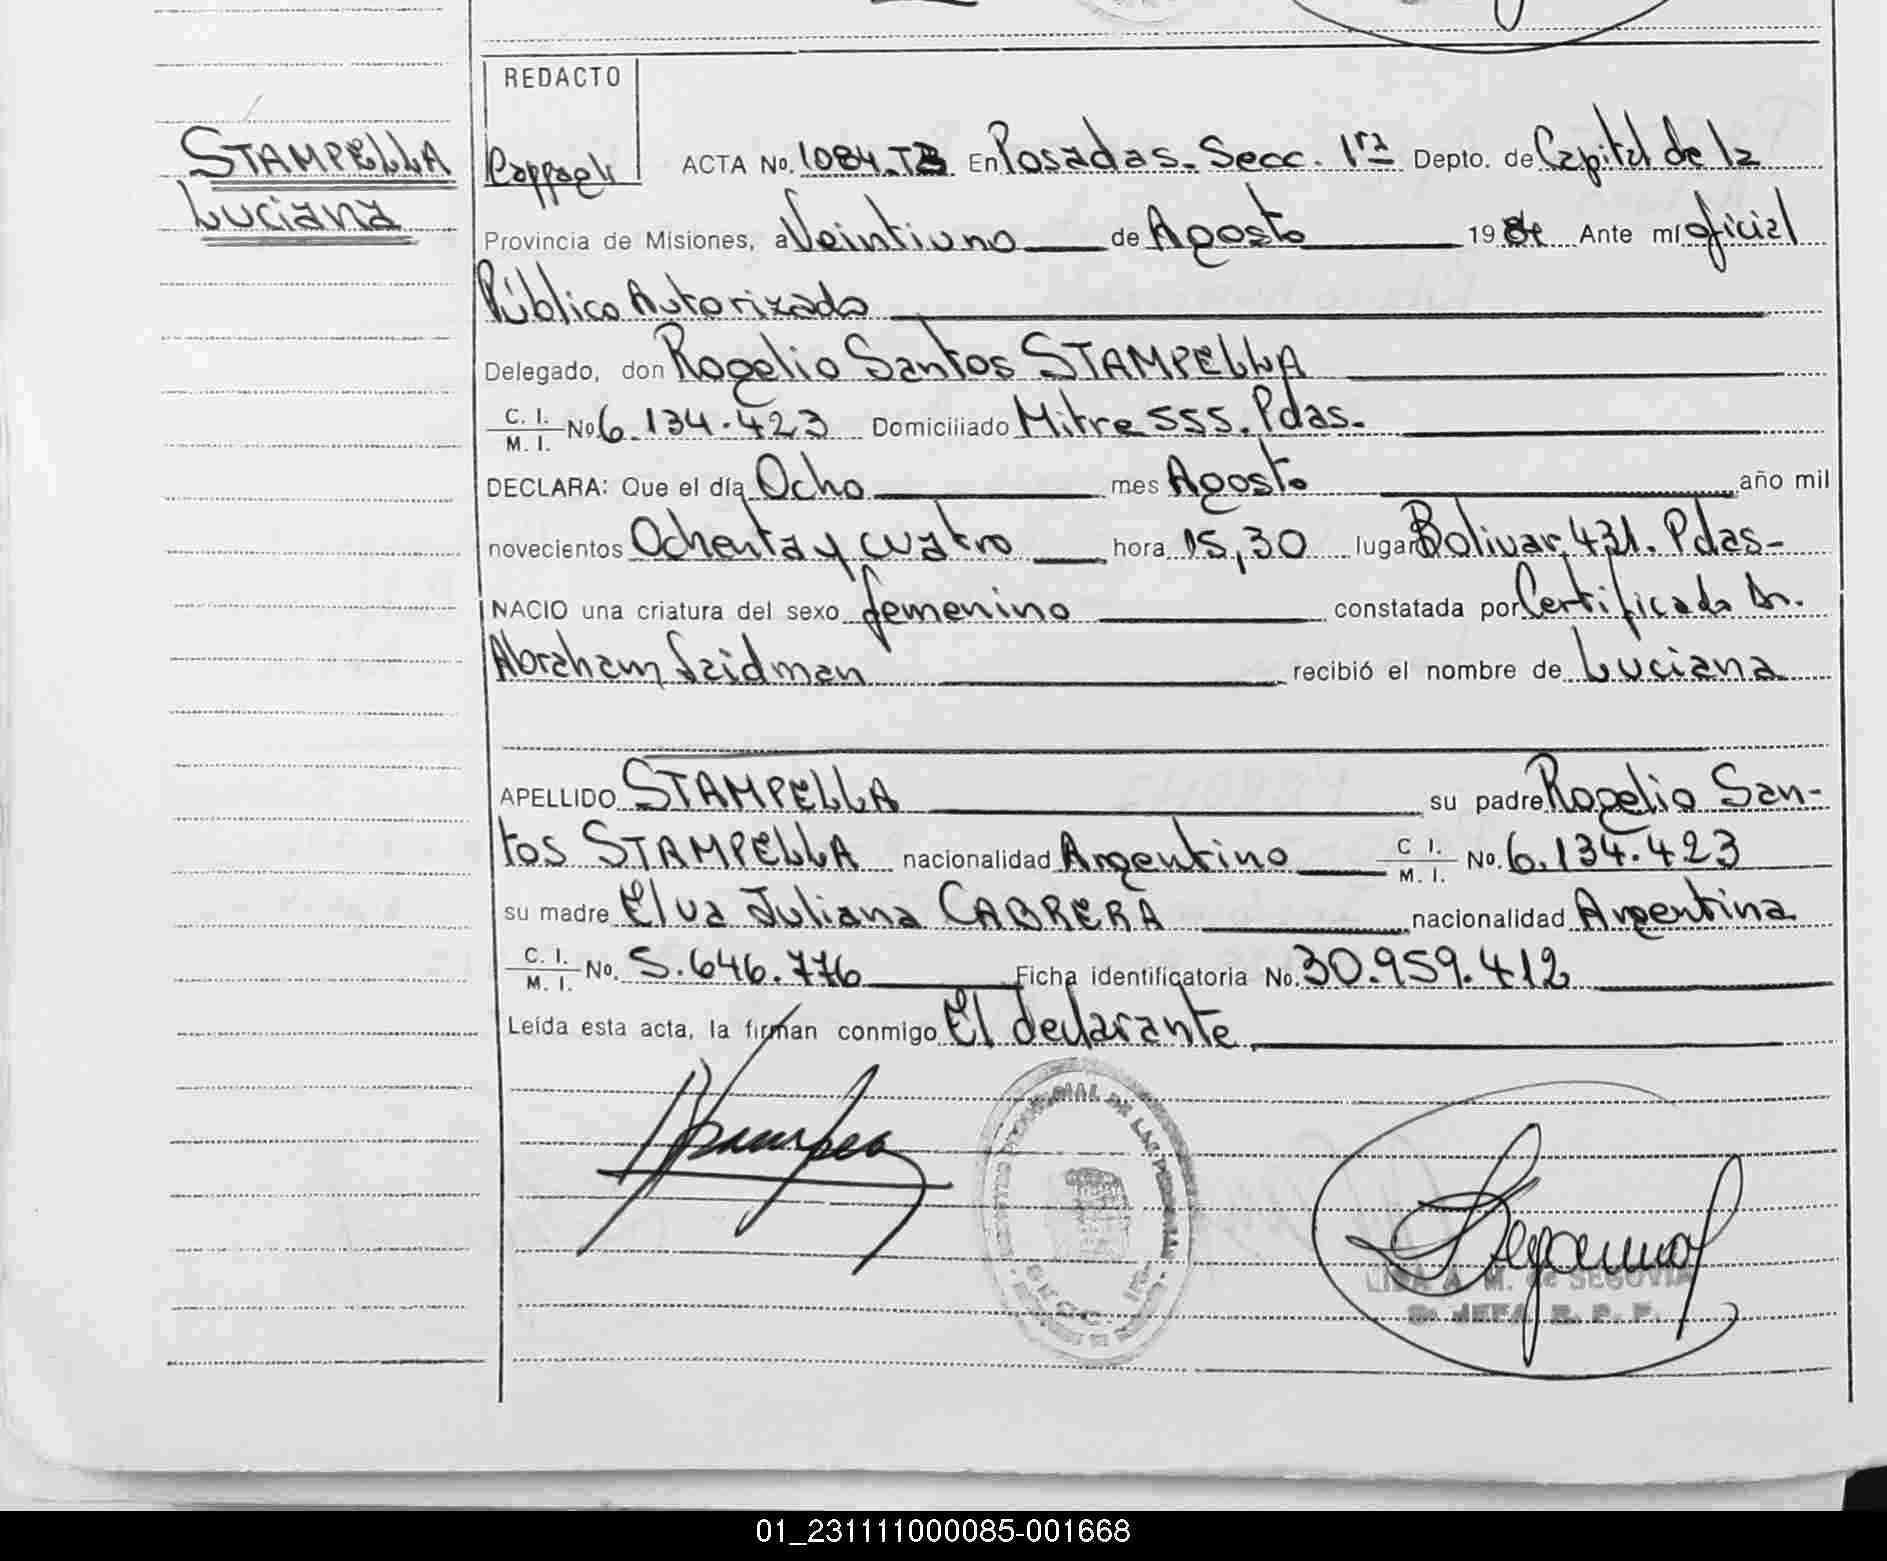 REDACTO
STAMPELLA
Luciana
ACTA No. 1084.TB En Posadas. Secc. 1ra Depto. de Capital de la
Provincia de Misiones, a Veintiuno de Agosto 1984 Ante mí oficial
Público Autorizado
Delegado, don Rogelio Santos STAMPELLA
C. I. / M. I. No 6.134.423 Domiciliado Mitre 555. Pdas.
DECLARA: Que el día Ocho mes Agosto año mil
novecientos Ochenta y cuatro hora 15,30 lugar Bolivar 431. Pdas-
NACIO una criatura del sexo femenino constatada por Certificado Dr.
Abraham Saidman recibió el nombre de Luciana
APELLIDO STAMPELLA su padre Rogelio San-
tos STAMPELLA nacionalidad Argentino C I. / M. I. No. 6.134.423
su madre Elva Juliana CABRERA nacionalidad Argentina
C. I. / M. I. No. 5.646.776 Ficha identificatoria No. 30.959.412
Leída esta acta, la firman conmigo El declarante
DE LAS
A. M. de SEGOVIA
JEFA R. P. P.
01_231111000085-001668